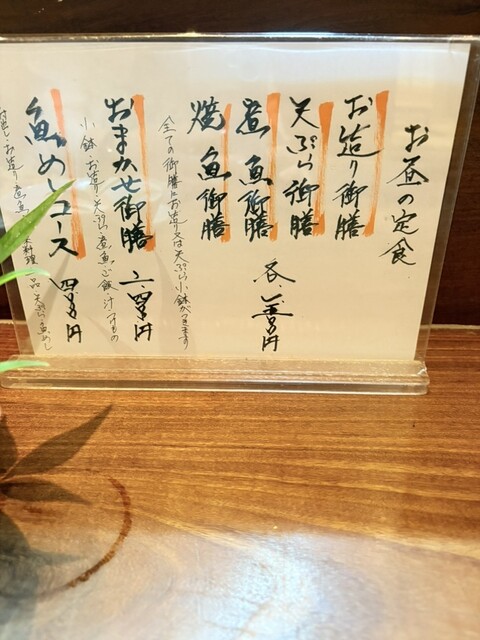 お昼の定食
お造り御膳
天ぷら御膳
煮魚御膳
焼魚御膳
各、
円
全ての御膳にお造り又は天ぷら小鉢がつきます
おまかせ御膳
円
小鉢・お造り・天ぷら・煮魚・ご飯・汁・つけもの
魚めしコース
円
お造り 煮魚
料理一品 天ぷら・魚めし